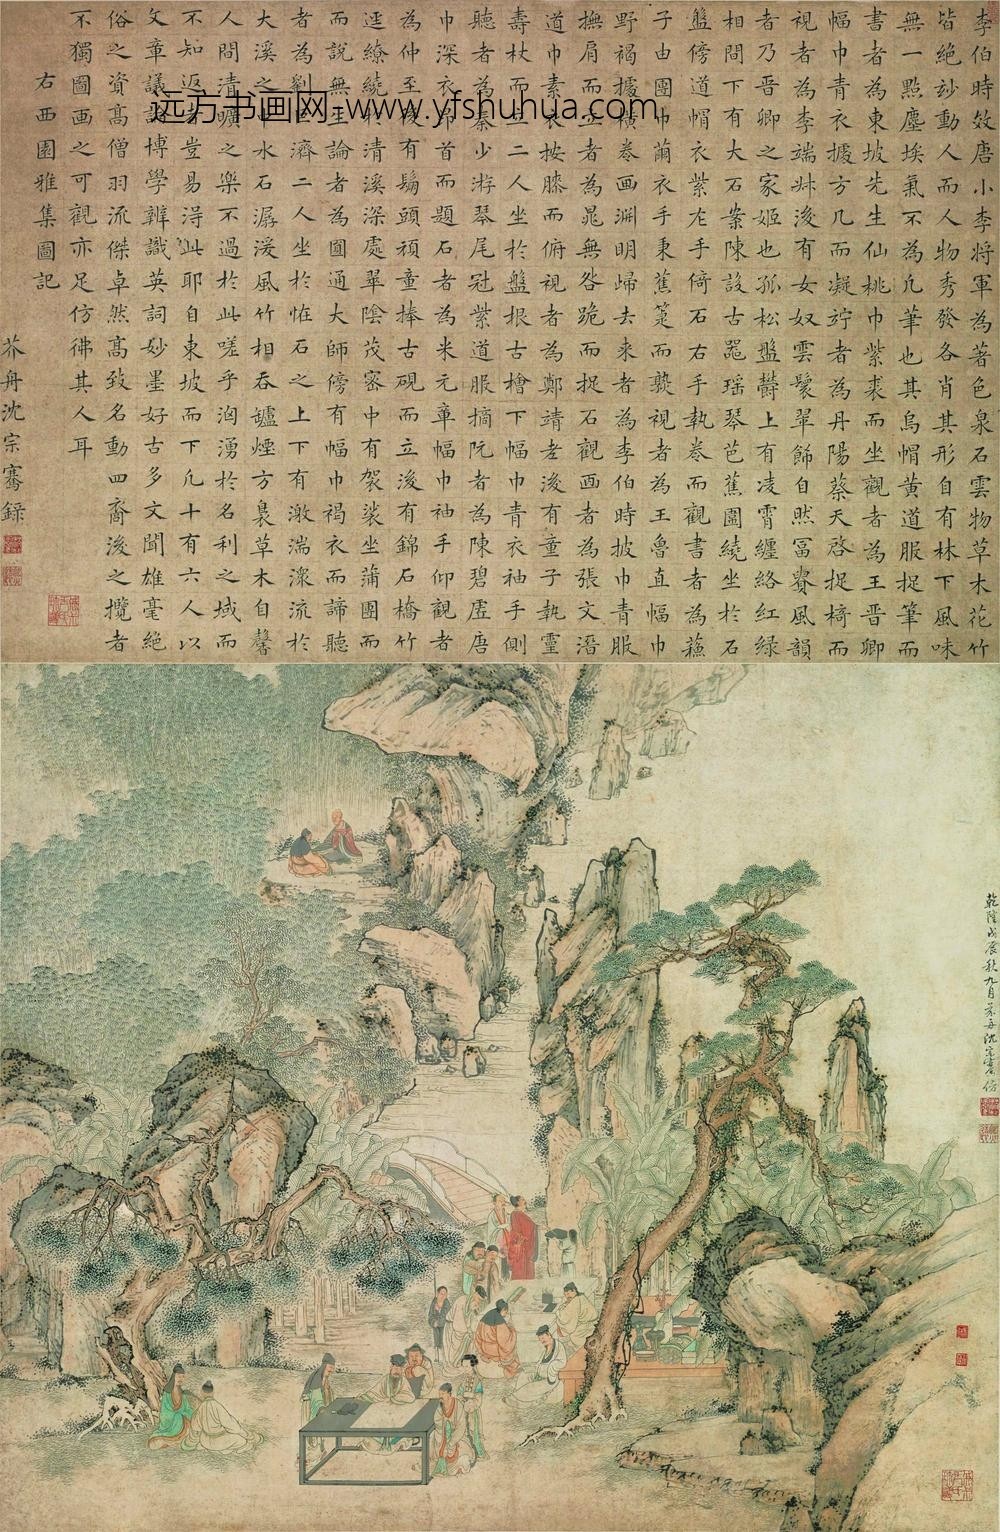 李伯時效唐小李將軍為著色泉石雲物草木花竹
皆絕玅動人而人物秀發各肖其形自有林下風味
無一點塵埃氣不為凡筆也其烏帽黃道服捉筆而
書者為東坡先生仙桃巾紫裘而坐觀者為王晉卿
幅巾青衣據方几而凝竚者為丹陽蔡天啓捉椅而
視者為李端叔後有女奴雲鬟翠飾自然富貴風韻
者乃晉卿之家姬也孤松盤欝上有凌霄纏絡紅綠
相間下有大石案陳設古噐瑤琴芭蕉圍繞坐於石
盤傍道帽衣紫左手倚石右手執卷而觀書者為蘇
子由團巾繭衣手秉蕉箑而熟視者為王魯直幅巾
野褐據橫卷画淵明歸去来者為李伯時披巾青服
撫肩而立者為晁無咎跪而捉石觀画者為張文潛
道巾素衣按膝而俯視者為鄭靖老後有童子執靈
壽杖而立二人坐於盤根古檜下幅巾青衣袖手側
聽者為秦少游琴尾冠紫道服摘阮者為陳碧虛唐
巾深衣昂首而題石者為米元章幅巾袖手仰觀者
為仲至後有鬅頭頑童捧古硯而立後有錦石橋竹
逕繚繞於清溪深處翠陰茂密中有袈裟坐蒲團而
而說無生論者為圓通大師傍有幅巾褐衣而諦聽
者為劉巨濟二人坐於怪石之上下有激湍潀流於
大溪之中水石潺湲風竹相吞罏煙方裊草木自馨
人間清曠之樂不過於此嗟乎洶湧於名利之域而
不知返者豈易淂此耶自東坡而下凡十有六人以
文章議論博學辨識英詞妙墨好古多文聞雄毫絕
俗之資高僧羽流傑卓然高致名動四裔後之攬者
不獨圖画之可觀亦足仿彿其人耳
右西園雅集圖記
芥舟沈宗騫録
远方书画网-www.yfshuhua.com
乾隆戊辰秋九月芥舟沈宗騫仿